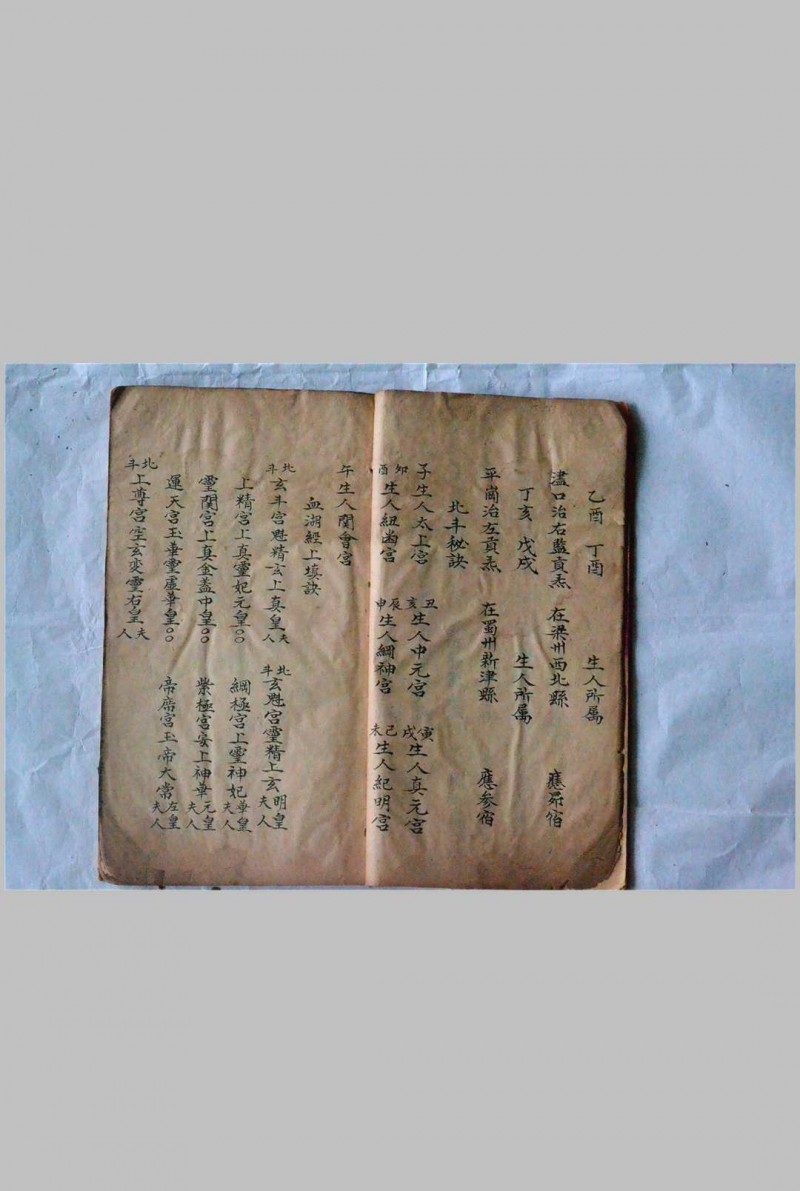 乙酉 丁酉 生人所属
湓口治右監貢炁 在梁州西北縣 應昴宿
丁亥 戊戌 生人所属
平崗治左貢炁 在蜀州新津縣 應参宿
北斗秘訣
子生人太上宫 丑亥生人中元宫 寅戌生人真元宫
卯酉生人紐幽宫 辰申生人綱神宫 巳未生人紀明宫
午生人関會宫
血湖經上填訣
北斗玄斗宫魁精玄上真皇夫人 北斗玄魁宫靈精上玄明皇夫人
上精宫上真靈妃元皇〇〇 綱極宫上靈神妃華皇夫人
靈関宫上真金盖中皇〇〇 紫極宫安上神華元皇夫人
運天宫玉華靈虚華皇〇〇 帝席宫玉帝大常左皇夫人
北斗上尊宫空玄变靈右皇夫人